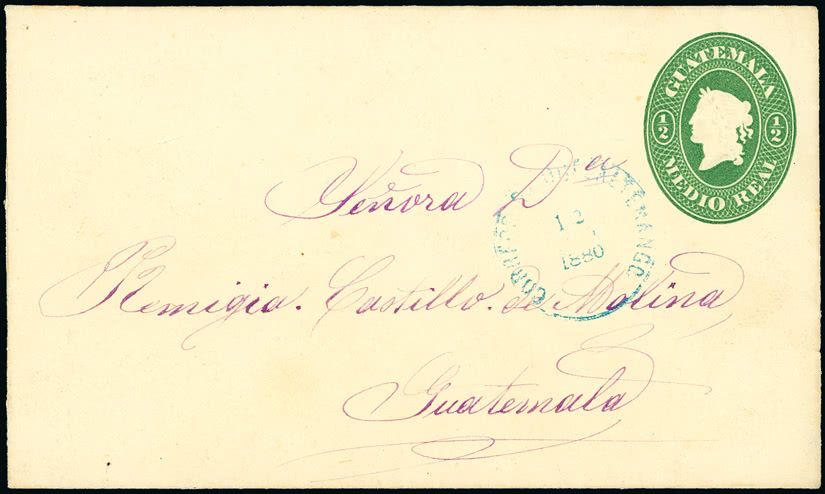 GUATEMALA
1/2 1/2
MEDIO REAL
Señora Dª
Remigia. Castillo. de Molina
Guatemala
CORREOS
12
1880